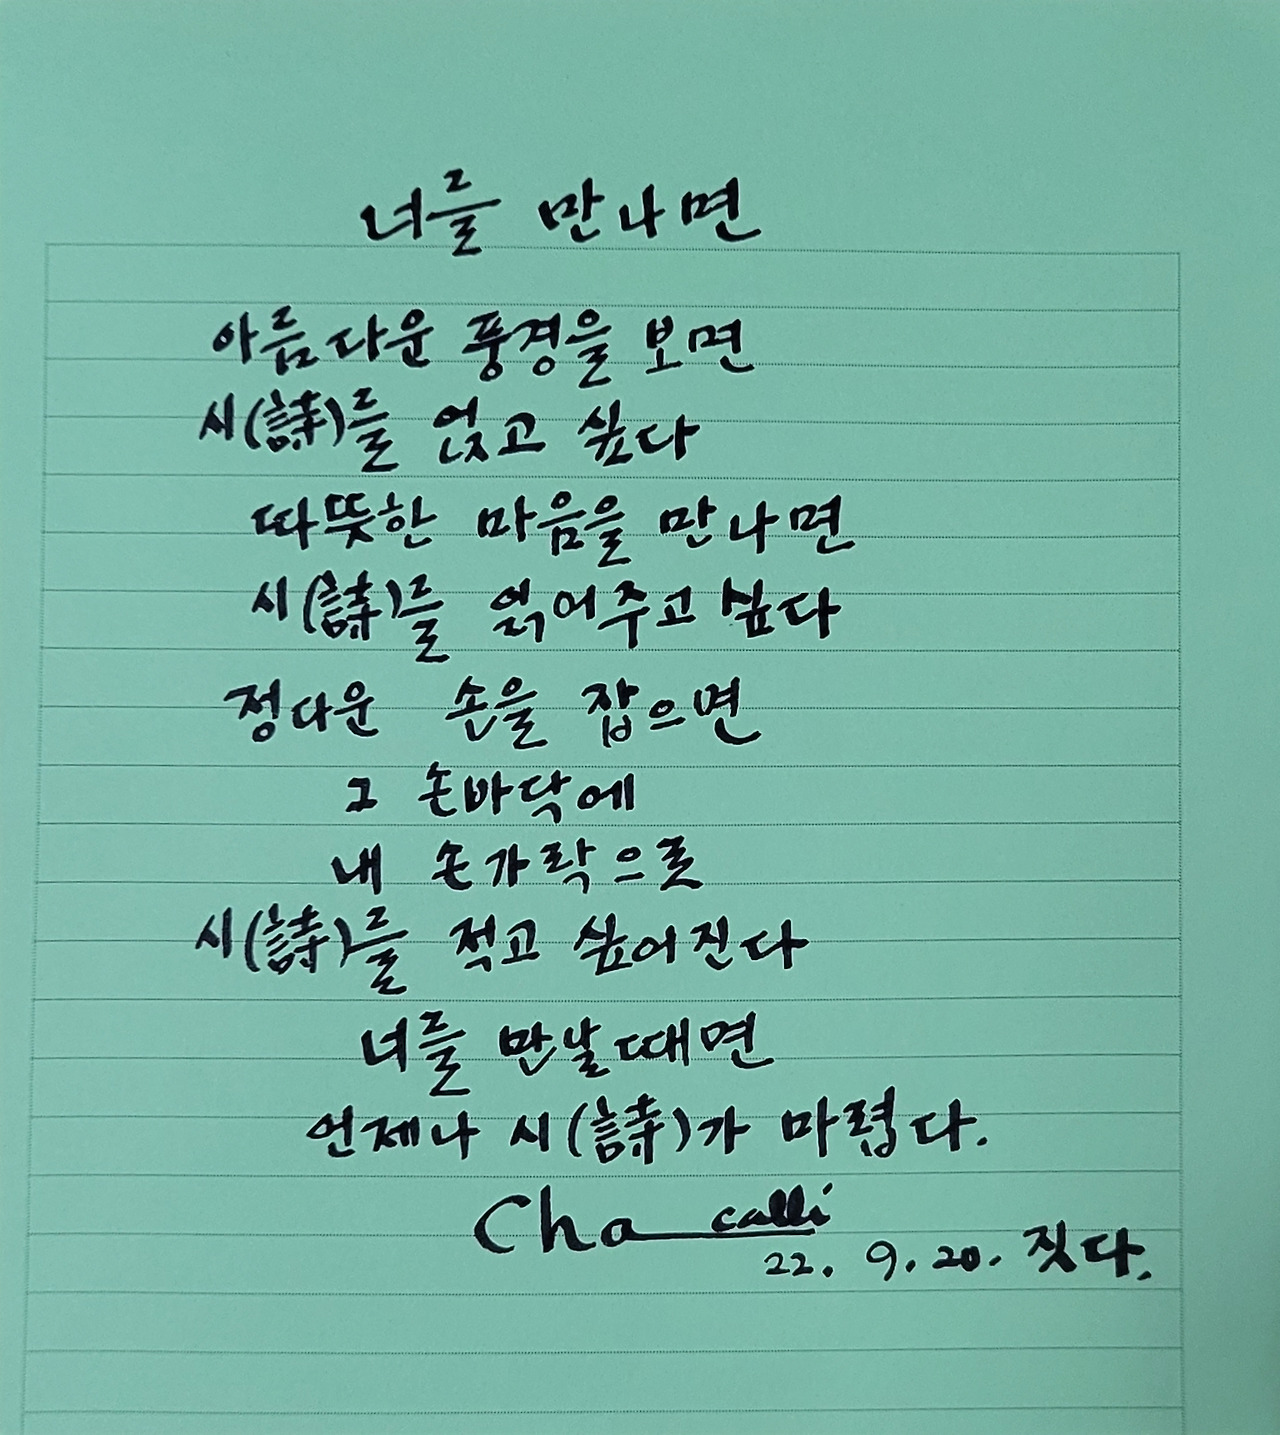 너를 만나면
아름다운 풍경을 보면
시(詩)를 얹고 싶다
따뜻한 마음을 만나면
시(詩)를 읽어주고 싶다
정다운 손을 잡으면
그 손바닥에
내 손가락으로
시(詩)를 적고 싶어진다
너를 만날때면
언제나 시(詩)가 마렵다.
Cha calli
22. 9. 20. 짓다.